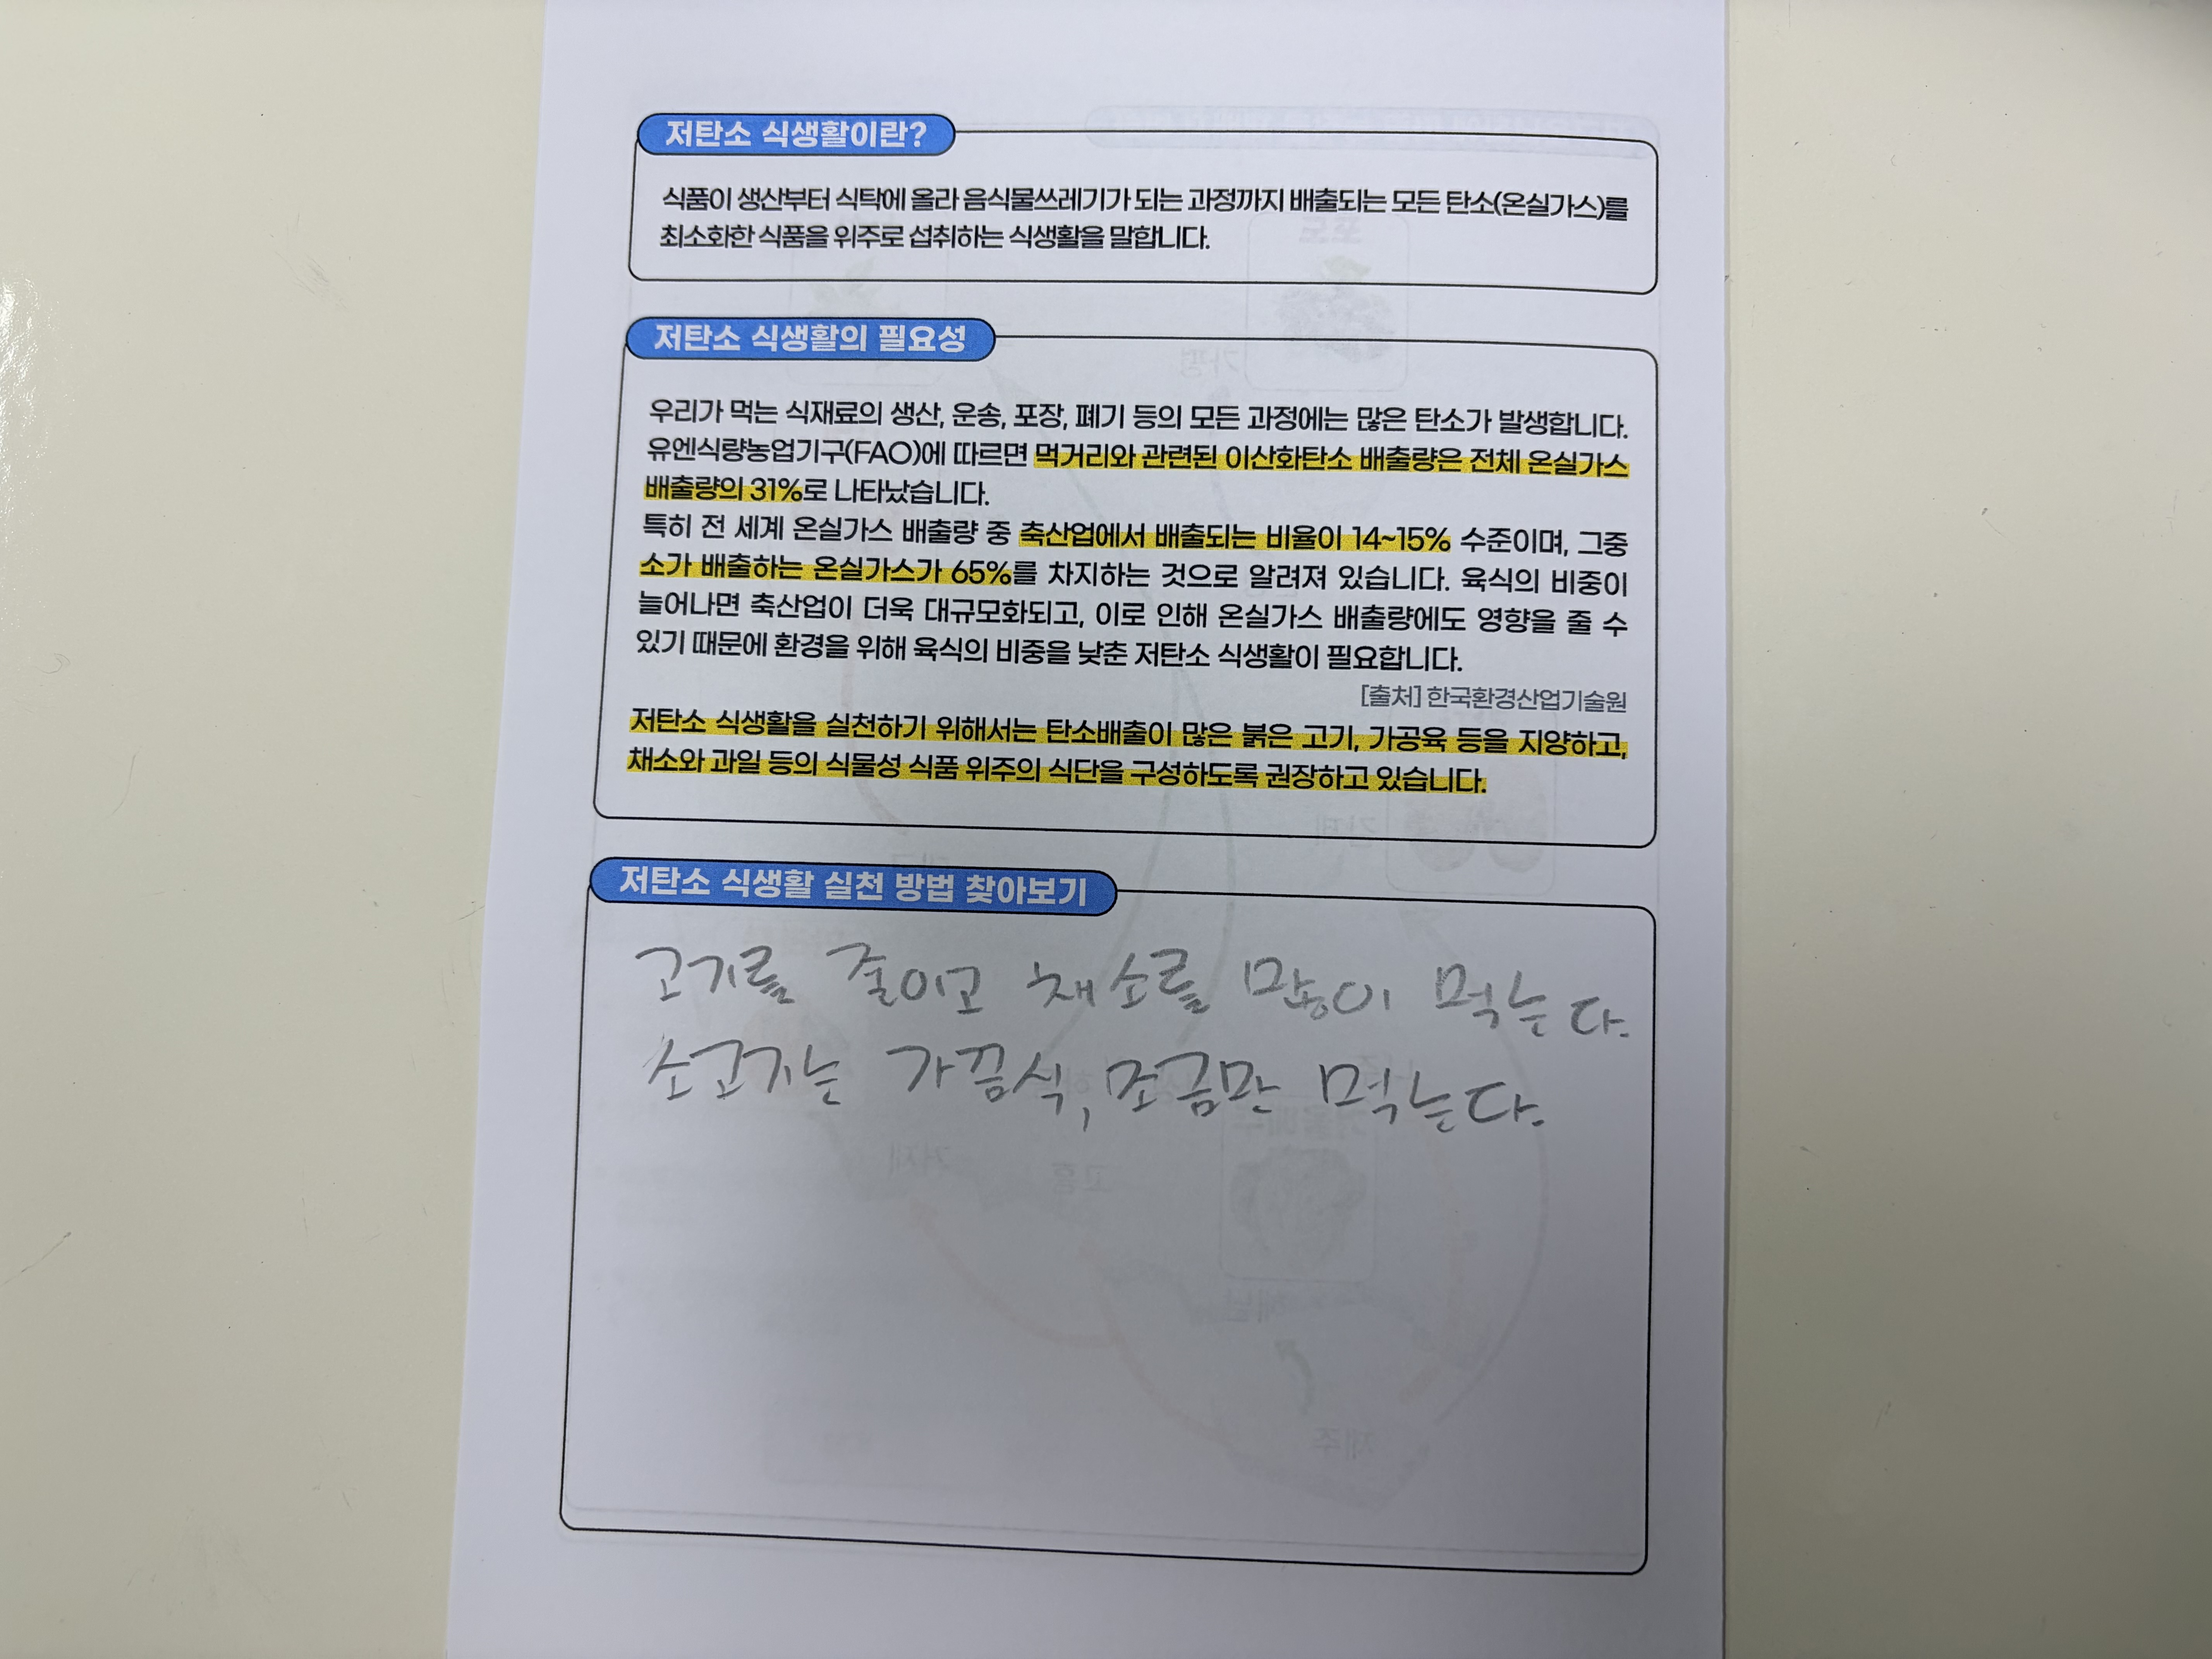 저탄소 식생활이란?
식품이 생산부터 식탁에 올라 음식물쓰레기가 되는 과정까지 배출되는 모든 탄소(온실가스)를
최소화한 식품을 위주로 섭취하는 식생활을 말합니다.
저탄소 식생활의 필요성
우리가 먹는 식재료의 생산, 운송, 포장, 폐기 등의 모든 과정에는 많은 탄소가 발생합니다.
유엔식량농업기구(FAO)에 따르면 먹거리와 관련된 이산화탄소 배출량은 전체 온실가스
배출량의 31%로 나타났습니다.
특히 전 세계 온실가스 배출량 중 축산업에서 배출되는 비율이 14~15% 수준이며, 그중
소가 배출하는 온실가스가 65%를 차지하는 것으로 알려져 있습니다. 육식의 비중이
늘어나면 축산업이 더욱 대규모화되고, 이로 인해 온실가스 배출량에도 영향을 줄 수
있기 때문에 환경을 위해 육식의 비중을 낮춘 저탄소 식생활이 필요합니다.
[출처] 한국환경산업기술원
저탄소 식생활을 실천하기 위해서는 탄소배출이 많은 붉은 고기, 가공육 등을 지양하고,
채소와 과일 등의 식물성 식품 위주의 식단을 구성하도록 권장하고 있습니다.
저탄소 식생활 실천 방법 찾아보기
고기를 줄이고 채소를 많이 먹는다.
소고기는 가끔식, 조금만 먹는다.